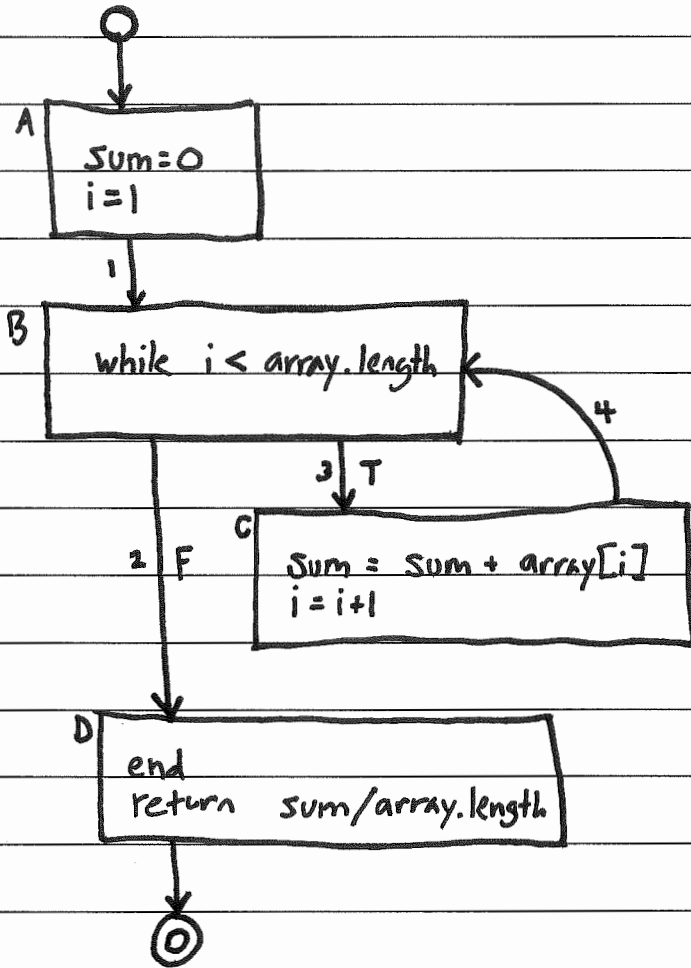 A
sum=0
i=1
1
B
while i < array.length
4
3 T
2 F
C
sum = sum + array[i]
i = i+1
D
end
return sum/array.length